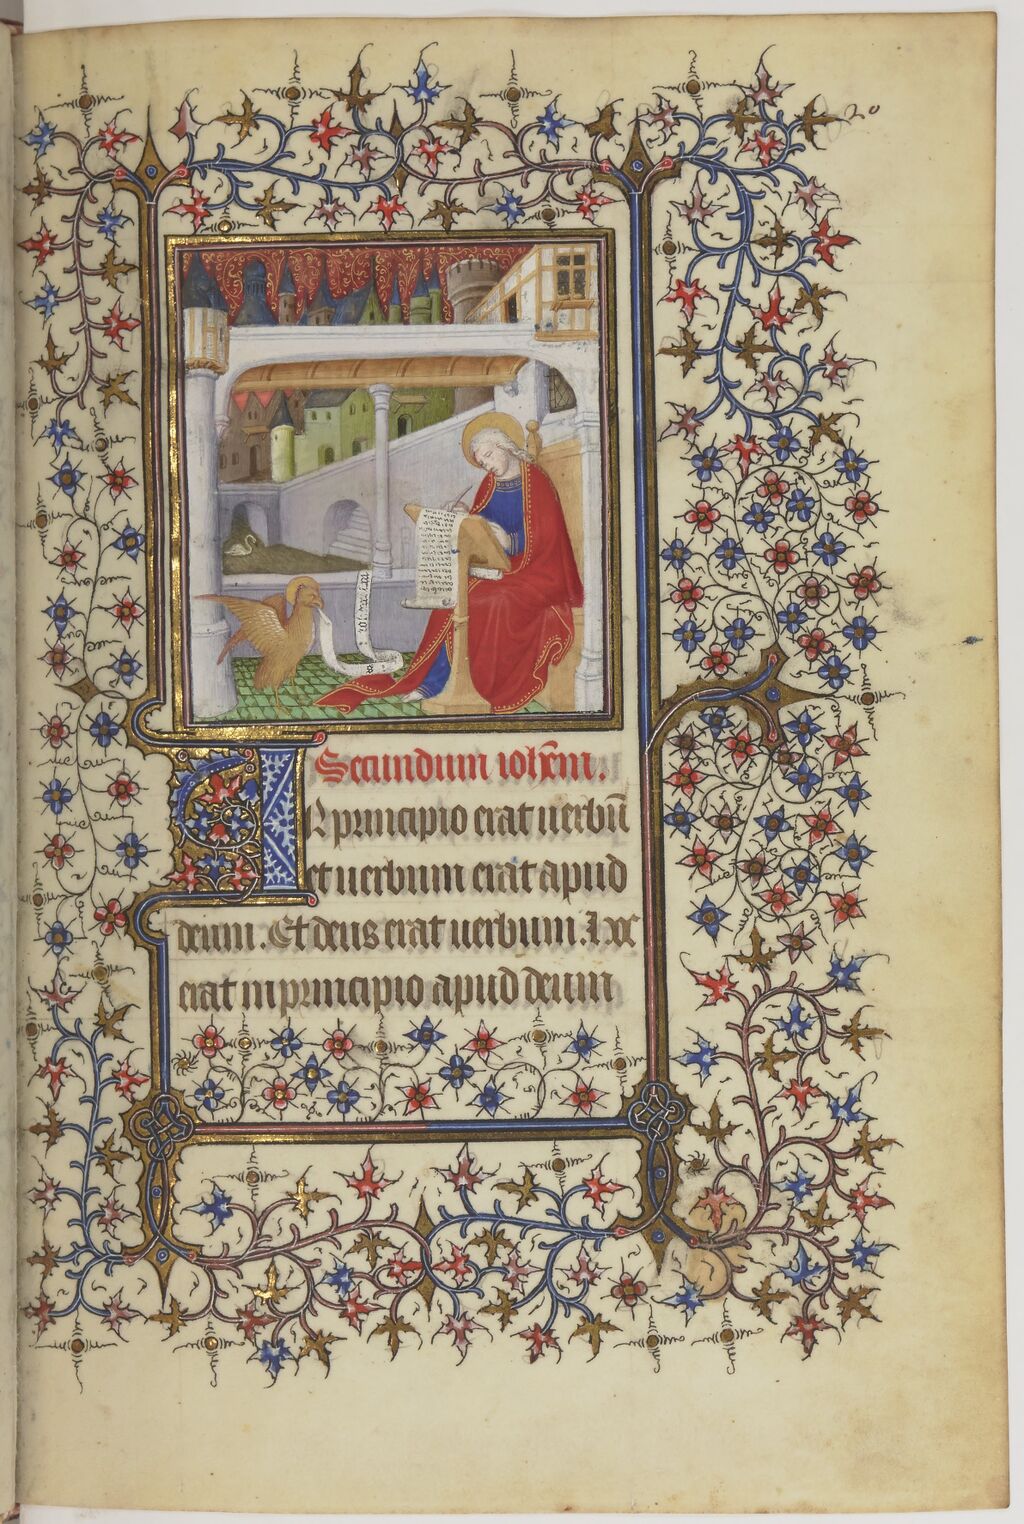 20
Secundum ioh̄em.
IN principio erat uerbū
et uerbum erat apud
deum. Et deus erat uerbum. hoc
erat in principio apud deum